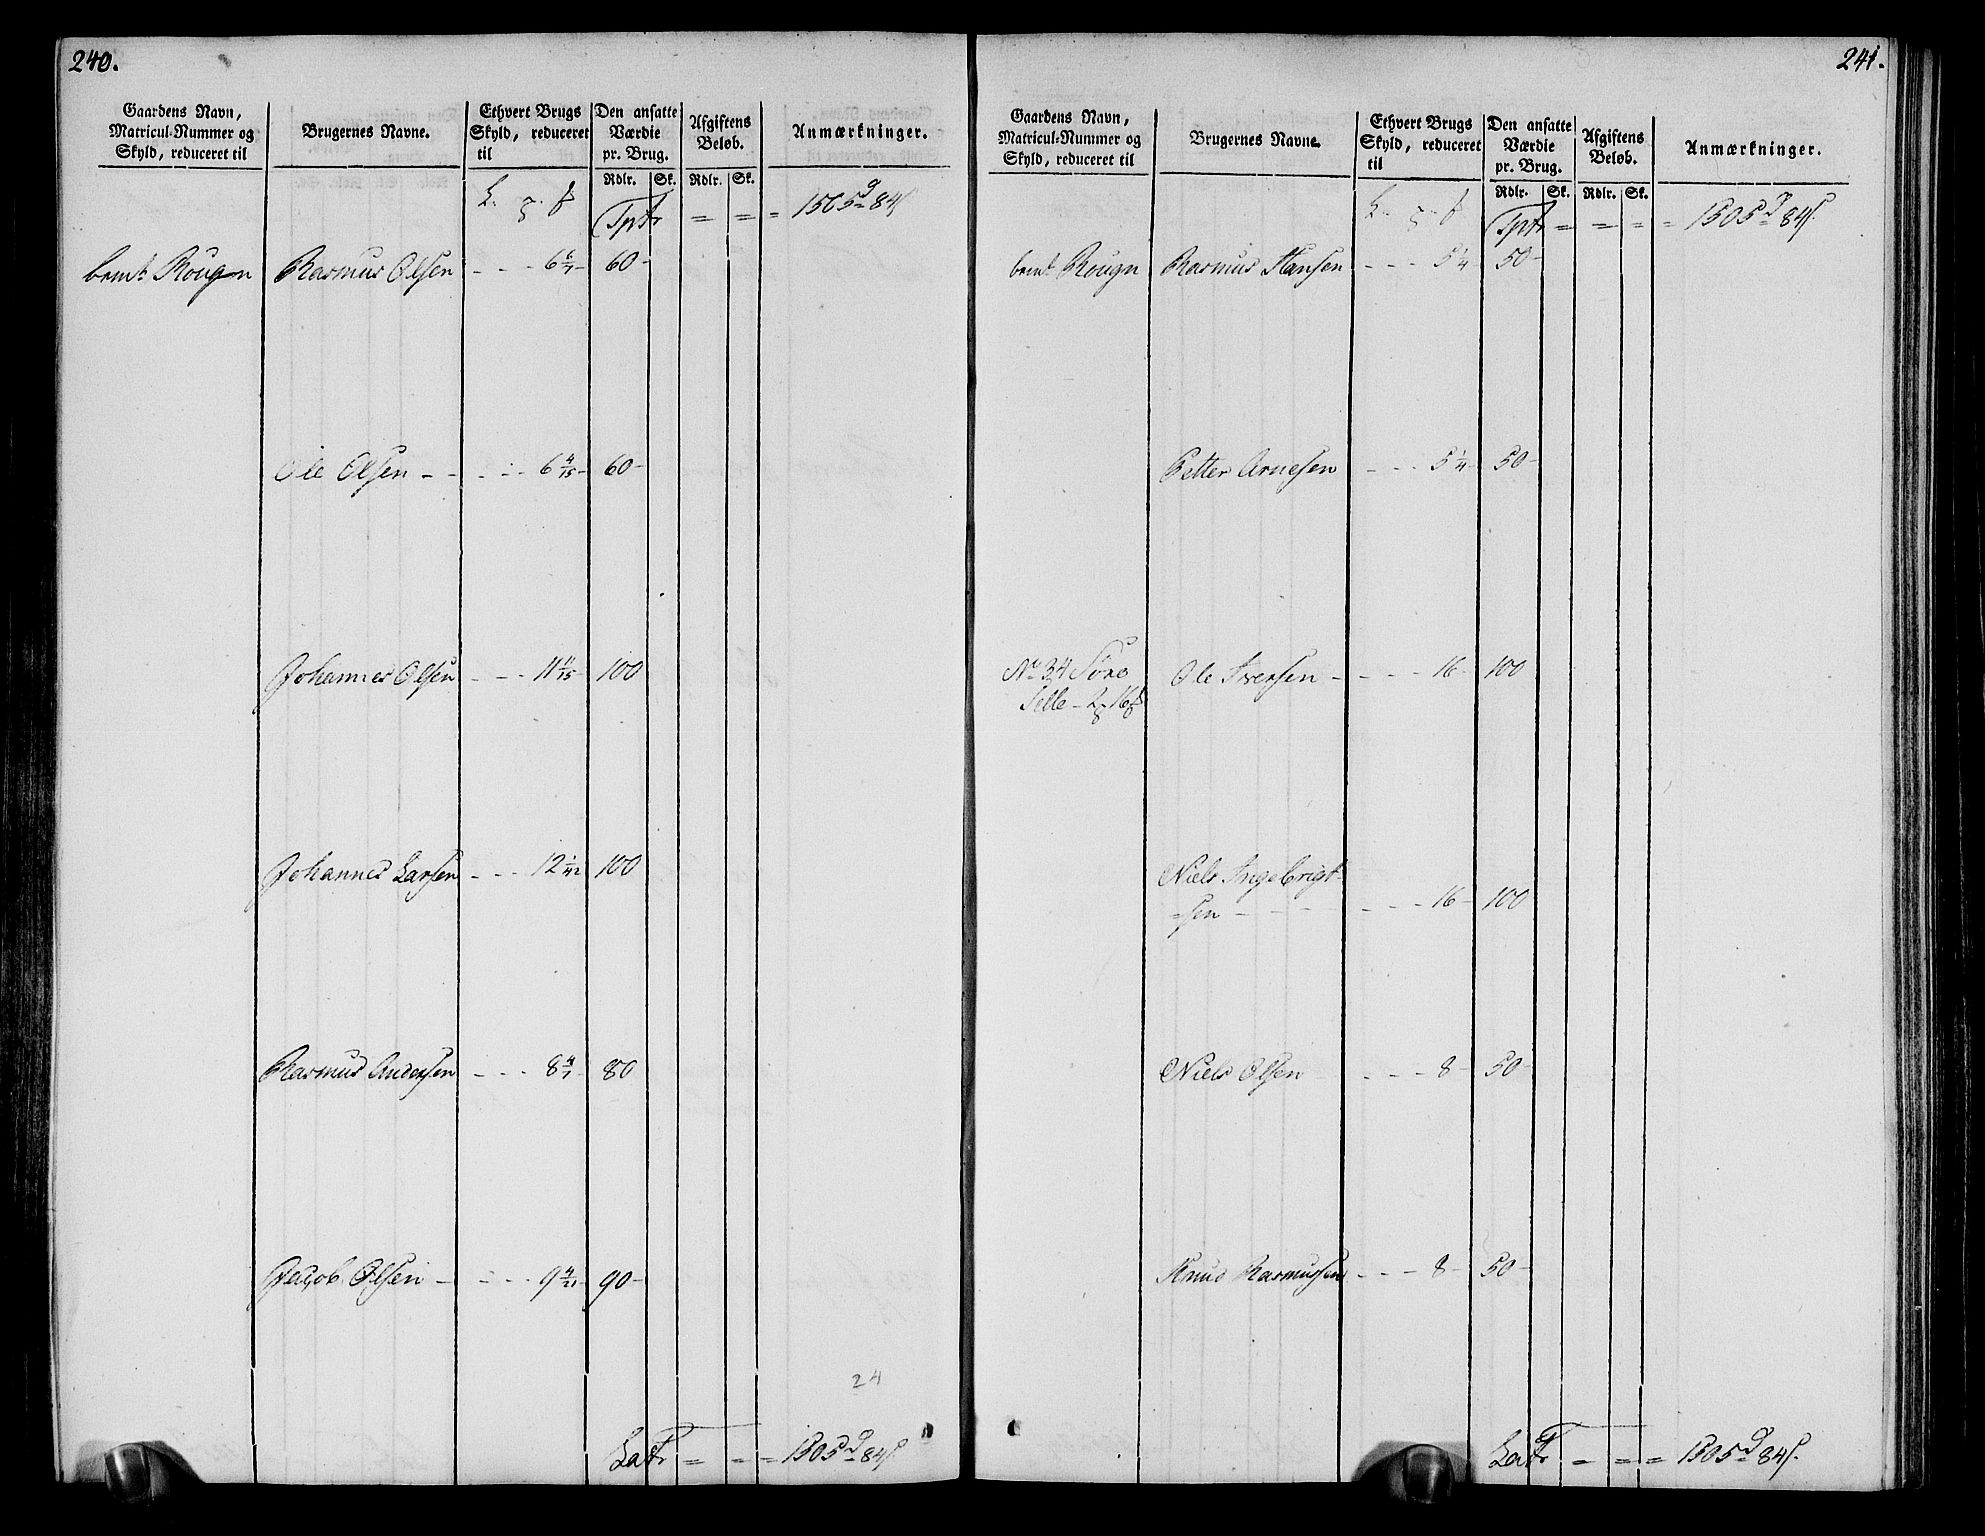 240.
Gaardens Navn,
Matricul-Nummer og
Skyld, reduceret til
Brugernes Navne.
Ethvert Brugs
Skyld, reduceret
til
Den ansatte
Værdie
pr. Brug.
Rdlr. Sk.
Afgiftens
Beløb.
Rdlr. Sk.
Anmærkninger.
Tptr = = = 1505 84
bemt Rougn Rasmus Olsen - - - 6 6/7 - 60 -
Ole Olsen - - - - - 6 4/15 - 60 -
Johannes Olsen - - - 11 11/15 - 100
Johannes Larsen - - - 12 1/42 100
Rasmus Andersen - - - 8 4/7 - 80
Jacob Olsen - - - - 9 4/21 - 90 -
24
Latr = = = 1505 84
241.
Gaardens Navn,
Matricul-Nummer og
Skyld, reduceret til
Brugernes Navne.
Ethvert Brugs
Skyld, reduceret
til
Den ansatte
Værdie
pr. Brug.
Rdlr. Sk.
Afgiftens
Beløb.
Rdlr. Sk.
Anmærkninger.
Tptr = = = = 1505 84
bemt Rougn Rasmus Hansen - - - 5 1/4 50 -
Petter Arnesen - - - 5 1/4 - 50 -
No 34 Søre Ole Iversen - - - - 16 - 100
Selle - 2 16
Niels Ingebrigt-
=sen - - - - - - 16 - 100
Niels Olsen - - - 8 - 50 -
Knud Rasmussen - - - 8 - 50 -
Latr = = = 1505 84